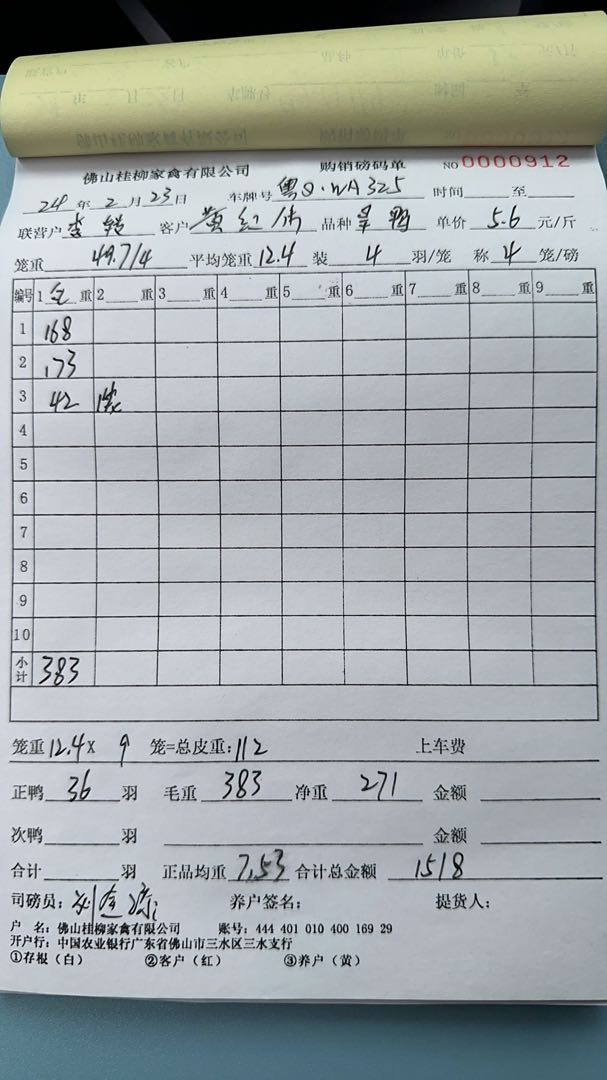 佛山桂柳家禽有限公司 购销磅码单 NO 0000912
24 年 2 月 23 日 车牌号 粤Q·WA325 时间 至
联营户 李 客户 黄红 品种 鸭 单价 5.6 元/斤
笼重 49.7/4 平均笼重 12.4 装 4 羽/笼 称 4 笼/磅
编号 1 全 重 2 重 3 重 4 重 5 重 6 重 7 重 8 重 9 重
1 168
2 173
3 42 1笼
4
5
6
7
8
9
10
小计 383
笼重 12.4 x 9 笼=总皮重: 112 上车费
正鸭 36 羽 毛重 383 净重 271 金额
次鸭 羽 金额
合计 羽 正品均重 7.53 合计总金额 1518
司磅员: 养户签名: 提货人:
户 名: 佛山桂柳家禽有限公司 账号: 444 401 010 400 169 29
开户行: 中国农业银行广东省佛山市三水区三水支行
①存根（白） ②客户（红） ③养户（黄）